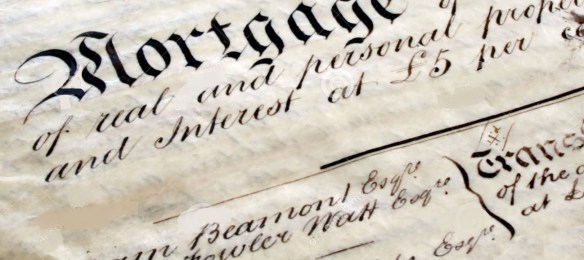 Mortgage
of real and personal
and Interest at £5 per
Beamont Esqre
Fowler Watt Esqre
Esqre
of the
at